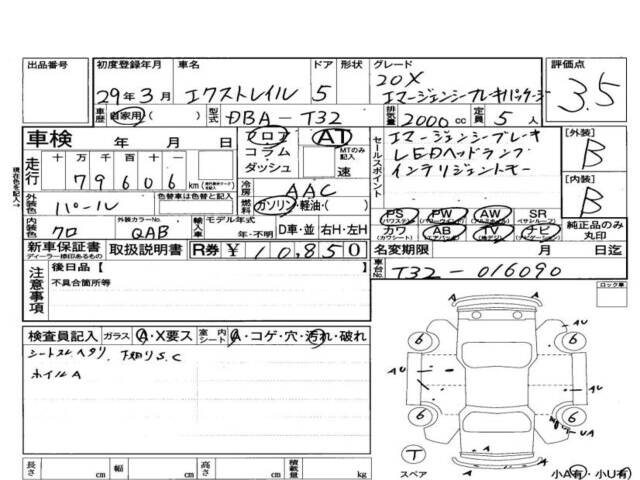 出品番号 初度登録年月 車名 ドア 形状 グレード 評価点
20X
29年3月 エクストレイル 5 エマージェンシーブレーキパッケージ 3.5
車歴 自家用 ( ) 型式 DBA-T32 排気量 2000cc 定員 5人
車検 年 月 日 フロア AT エマージェンシーブレーキ [外装]
コラム・ MTのみ記入 セールスポイント LEDヘッドランプ B
ダッシュ 速 インテリジェントキー
走行 十万千百十一 [内装]
79606 km 冷房 AAC B
現在色を記入→ 外装色 色替車は色替と記入 燃料 ガソリン・軽油・( )
パール PS PW AW SR 純正品のみ丸印
内装色 クロ 外装カラーNo. QAB 輸入車 モデル年式 年・不明 D車・並 右H・左H カワ AB TV ナビ
新車保証書 取扱説明書 R券 ¥ 10,850 名変期限 月 日迄
ディーラー捺印あるもの
注意事項 後日品【 】 車台No. T32-016090
不具合箇所等 ロック車
検査員記入 ガラス A・X要ス 室内シート A・コゲ・穴・汚れ・破れ
シートスレヘタリ、下廻りS.C
ホイルA
A
AU
6 6
AU AU
6 6
UA
T
スペア
A
長さ cm 幅 cm 高さ cm 積載量 kg 小A有・小U有